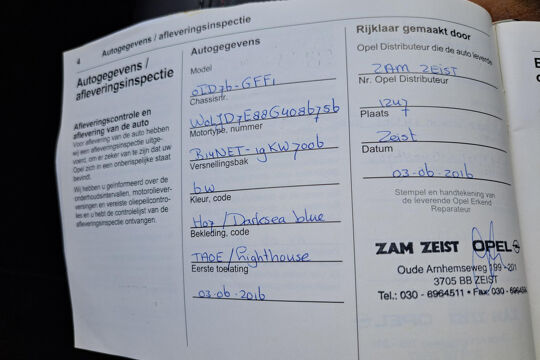 4 Autogegevens / afleveringsinspectie
Autogegevens /
afleveringsinspectie
Afleveringscontrole en
aflevering van de auto
Voor aflevering van de auto hebben
wij een afleveringsinspectie uitge-
voerd, om er zeker van te zijn dat uw
Opel zich in een onberispelijke staat
bevindt.
Wij hebben u geïnformeerd over de
onderhoudsintervallen, motoroliever-
versingen en vereiste oliepeilcontro-
les en u hebt de controlelijst van de
afleveringsinspectie ontvangen.
Autogegevens
Model
0JD76-GFF1
Chassisnr.
W0LJD7E88G4086756
Motortype, nummer
B14NET-19KW7006
Versnellingsbak
6W
Kleur, code
H07/Darksea blue
Bekleding, code
TAOE/Lighthouse
Eerste toelating
03-06-2016
Rijklaar gemaakt door
Opel Distributeur die de auto leverde
ZAM ZEIST
Nr. Opel Distributeur
1247
Plaats
Zeist
Datum
03-06-2016
Stempel en handtekening van
de leverende Opel Erkend
Reparateur
ZAM ZEIST OPEL
Oude Arnhemseweg 199-201
3705 BB ZEIST
Tel.: 030 - 6964511 • Fax: 030-